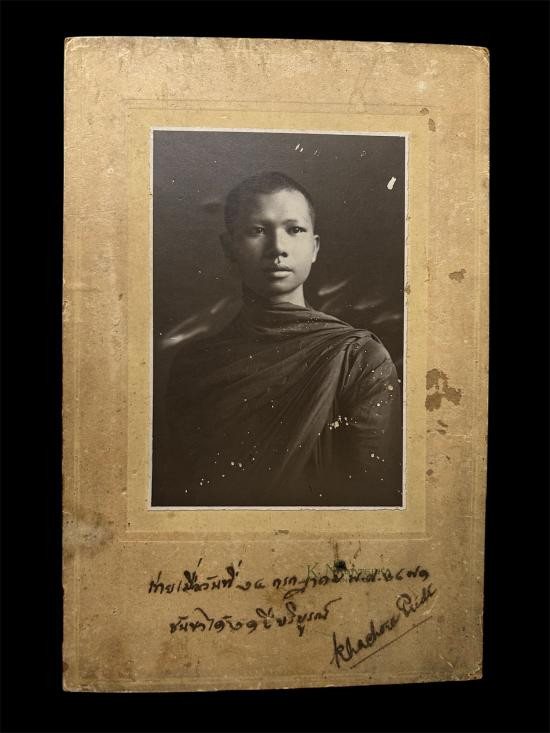 ถ่ายเมื่อวันที่ ๑๔ กรกฎาคม พ.ศ. ๒๔๗๑
ชันษาได้ ๒๑ ปีบริบูรณ์
Khachorn